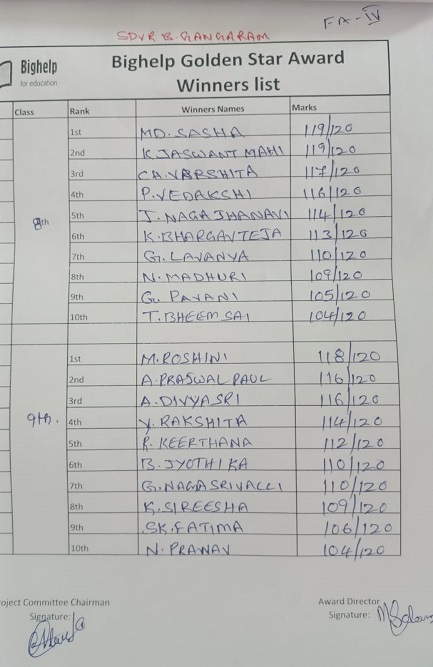 FA-IV
SDVR B. GANGARAM
Bighelp
for education
Bighelp Golden Star Award
Winners list
Class Rank Winners Names Marks
1st MD. SASHA 119/120
2nd K. JASWANT MAHI 119/120
3rd CH. VARSHITA 117/120
4th P. VEDAKSHI 116/120
5th J. NAGA JHANAVI 114/120
8th 6th K. BHARGAV TEJA 113/120
7th G. LAVANYA 110/120
8th N. MADHURI 109/120
9th G. PAVANI 105/120
10th T. BHEEM SAI 104/120
1st M. ROSHINI 118/120
2nd A. PRASWAL PAUL 116/120
3rd A. DIVYA SRI 116/120
9th. 4th Y. RAKSHITA 114/120
5th R. KEERTHANA 112/120
6th B. JYOTHIKA 110/120
7th G. NAGA SRIVALLI 110/120
8th K. SIREESHA 109/120
9th SK. FATIMA 106/120
10th N. PRANAV 104/120
oject Committee Chairman Award Director
Signature: Signature: